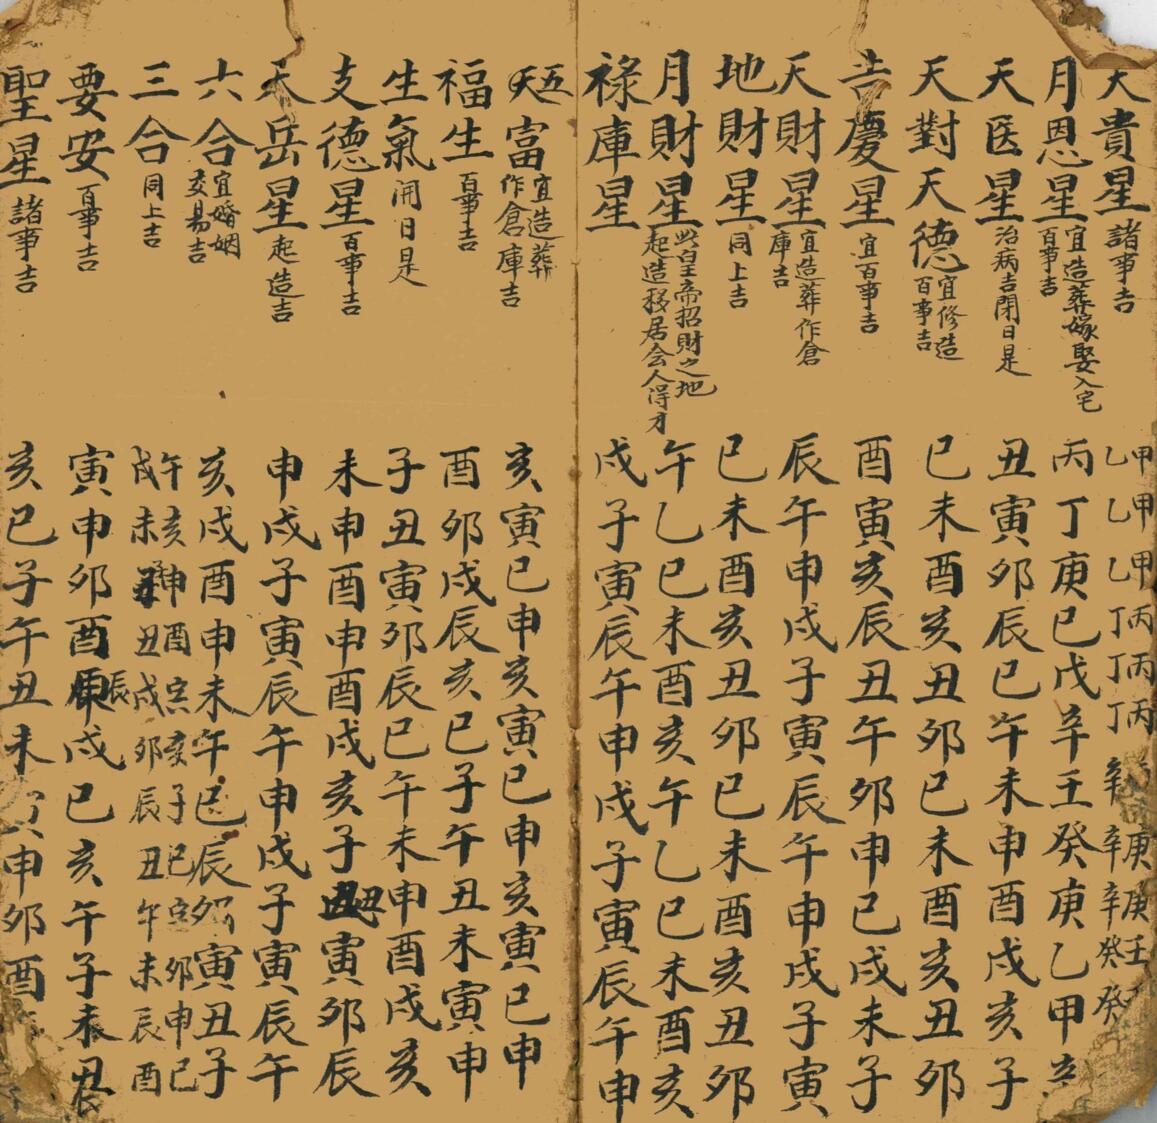 天貴星 諸事吉 甲乙 甲乙 甲乙 丙丁 丙丁 丙丁 辛 庚辛 庚辛 壬癸 癸
月恩星 宜造葬嫁娶入宅百事吉 丙丁庚巳戊辛壬癸庚乙甲
天医星 治病吉閉日是 丑寅卯辰巳午未申酉戌亥子
天對天德 宜修造百事吉 巳未酉亥丑卯巳未酉亥丑卯
吉慶星 宜百事吉 酉寅亥辰丑午卯申巳戌未子
天財星 宜造葬作倉庫吉 辰午申戌子寅辰午申戌子寅
地財星 同上吉 巳未酉亥丑卯巳未酉亥丑卯
月財星 此皇帝招財之地起造移居会人得才 午乙巳未酉亥午乙巳未酉亥
祿庫星 戌子寅辰午申戌子寅辰午申
天五富 宜造葬作倉庫吉 亥寅巳申亥寅巳申亥寅巳申
福生 百事吉 酉卯戌辰亥巳子午丑未寅申
生氣 開日是 子丑寅卯辰巳午未申酉戌亥
支德星 百事吉 未申酉申酉戌亥子丑寅卯辰
天岳星 起造吉 申戌子寅辰午申戌子寅辰午
六合 宜婚姻交易吉 亥戌酉申未午巳辰卯寅丑子
三合 同上吉 午戌 亥未 申子 酉丑 戌 亥卯 子辰 巳丑 午 卯未 申辰 巳酉
要安 百事吉 寅申卯酉辰戌巳亥午子未丑
聖星 諸事吉 亥巳子午丑未寅申卯酉